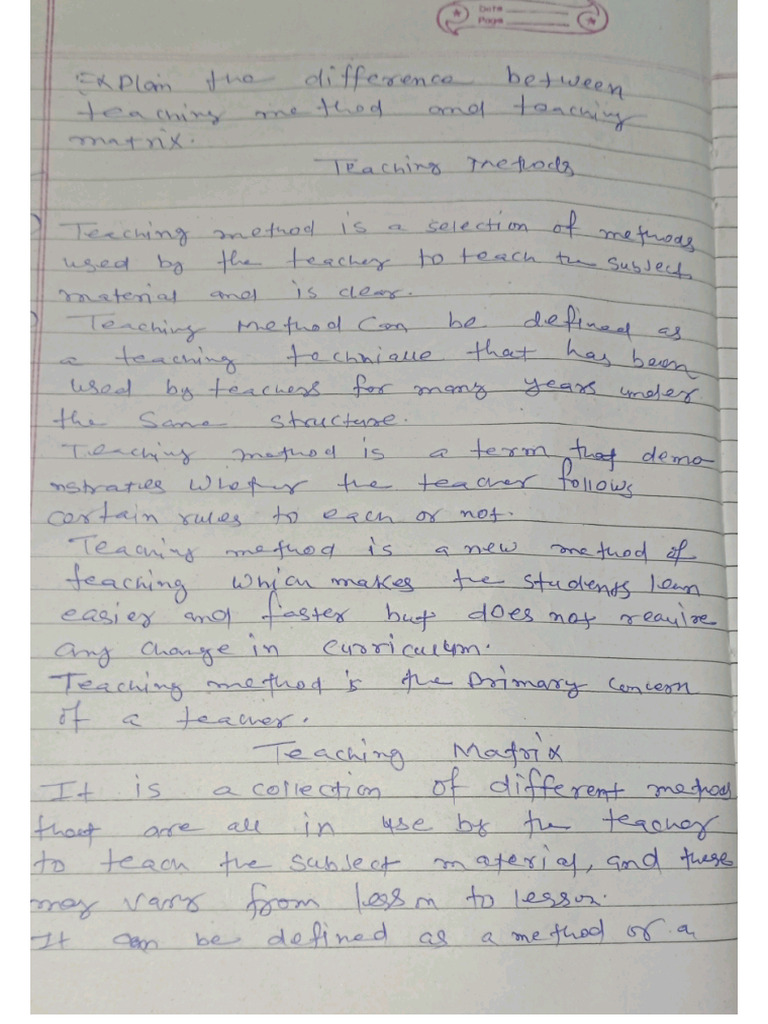 Date
Page
Explain the difference between
teaching method and teaching
matrix.
Teaching Methods
Teaching method is a selection of methods
used by the teacher to teach the subject
material and is clear.
Teaching Method Can be defined as
a teaching technique that has been
used by teachers for many years under
the same structure.
Teaching method is a term that demo
nstraties whether the teacher follows
certain rules to each or not.
Teaching method is a new method of
teaching which makes the students learn
easier and faster but does not require
any change in curriculum.
Teaching method is the primary concern
of a teacher.
Teaching Matrix
It is a collection of different methods
that are all in use by the teacher
to teach the subject material, and these
may vary from lesson to lesson.
It can be defined as a method or a